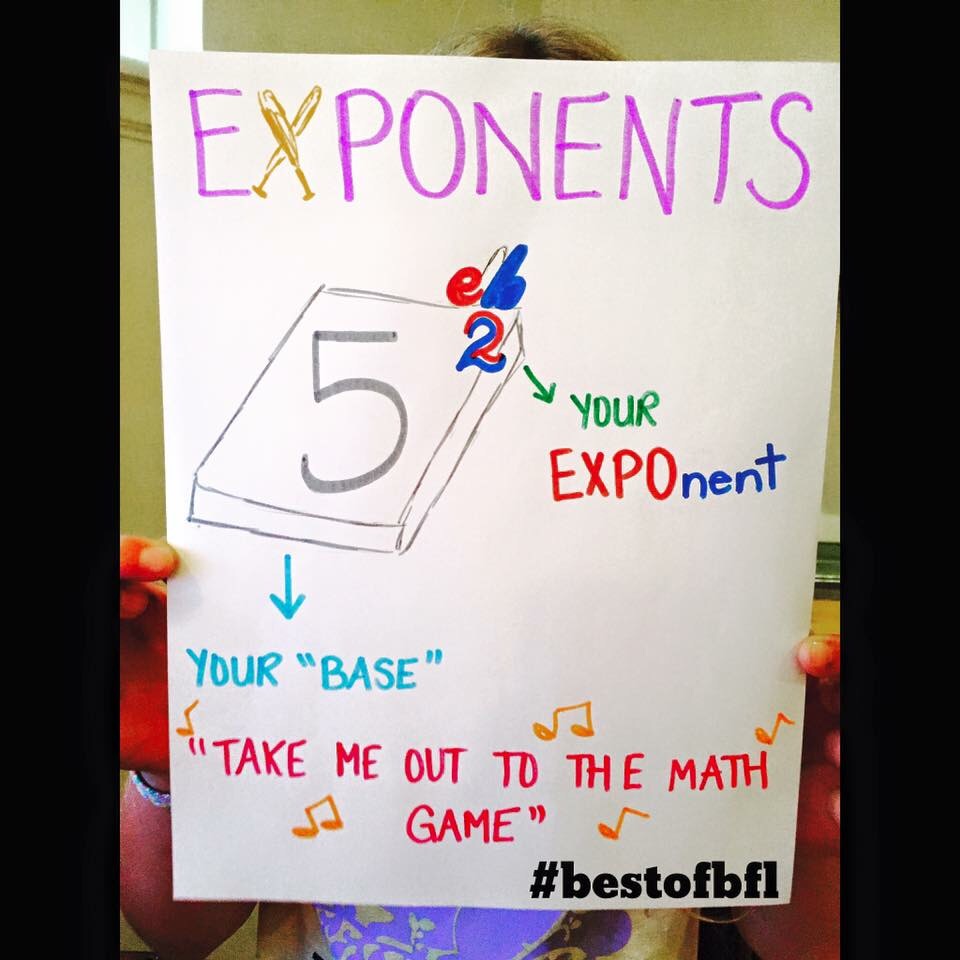 EXPONENTS
eb
5 2
YOUR
EXPOnent
YOUR "BASE"
"TAKE ME OUT TO THE MATH
GAME"
#bestofbfl